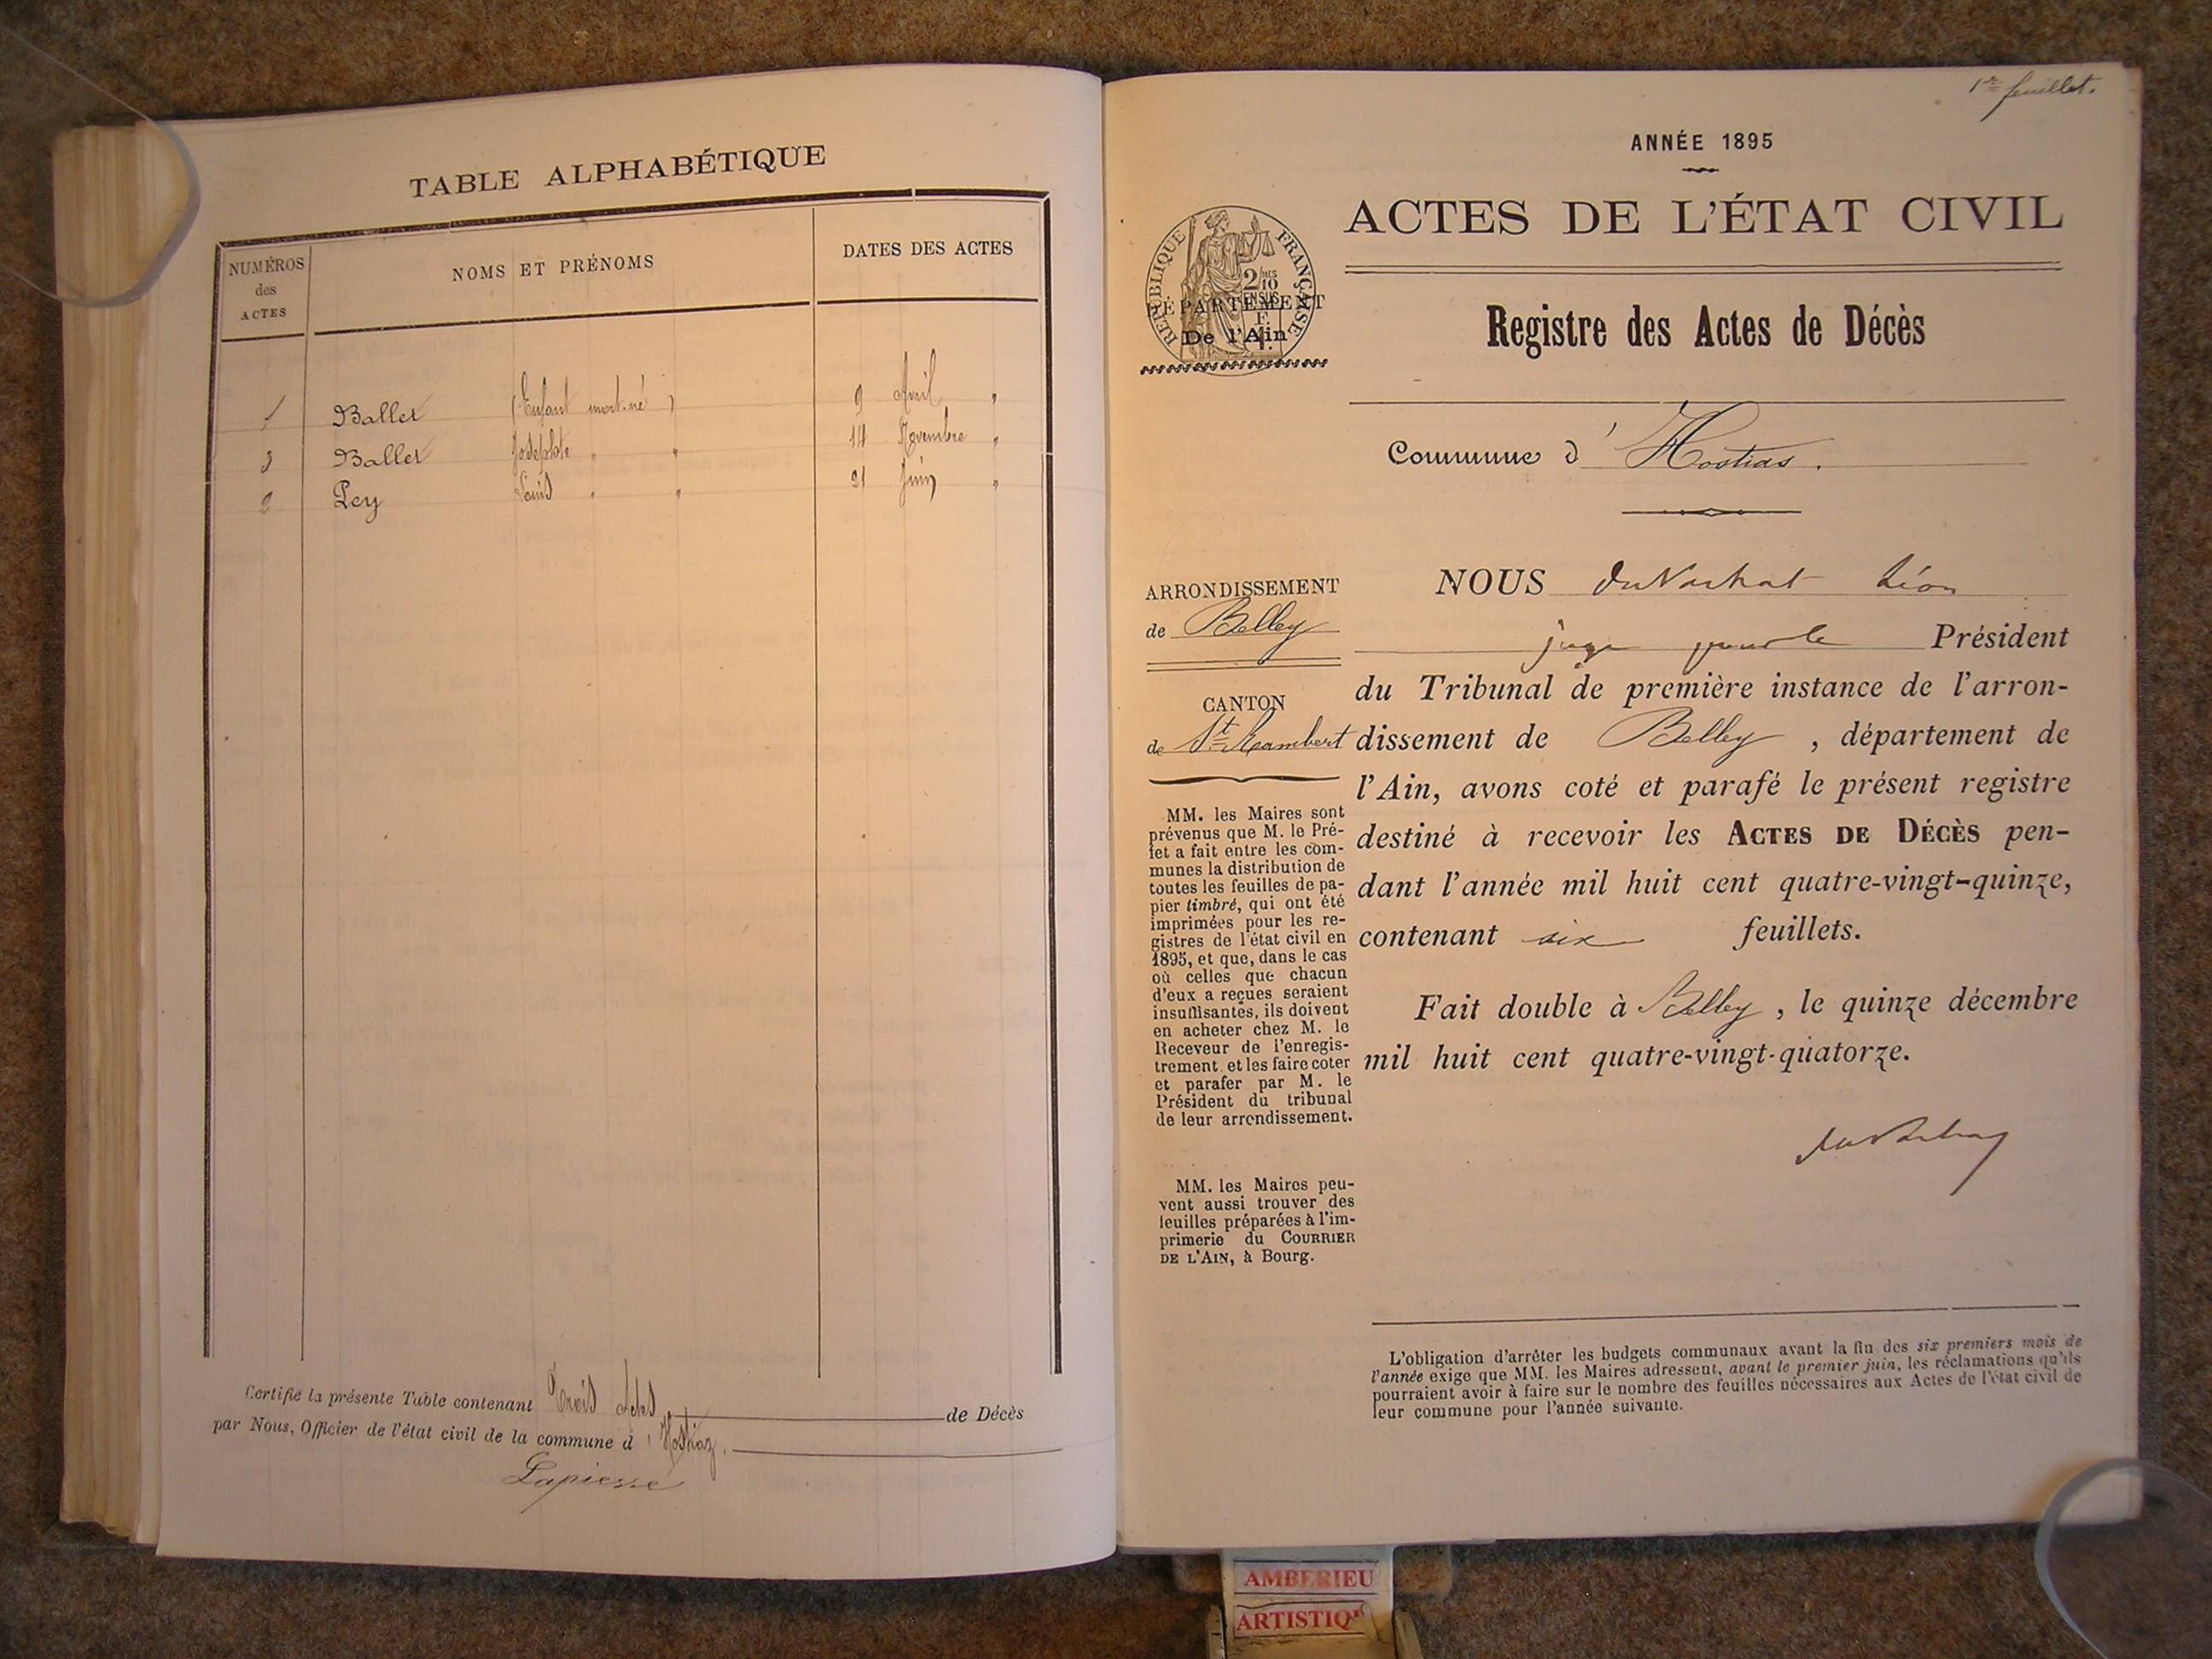 TABLE ALPHABÉTIQUE
NUMÉROS
des
ACTES
NOMS ET PRÉNOMS
DATES DES ACTES
1 Ballet (Enfant mort-né) 9 Avril "
3 Ballet Josephte " " 14 Novembre "
2 Pey Louis " " 21 Juin "
Certifié la présente Table contenant Trois Actes de Décès
par Nous, Officier de l'état civil de la commune d'Hostiaz.
Lapierre
1er feuillet.
ANNÉE 1895
ACTES DE L'ÉTAT CIVIL
RÉPUBLIQUE FRANÇAISE
2/10 EN SUS
DÉPARTEMENT
De l'Ain
Registre des Actes de Décès
Commune d'Hostias.
ARRONDISSEMENT
de Belley
CANTON
de St Rambert
MM. les Maires sont
prévenus que M. le Pré-
fet a fait entre les com-
munes la distribution de
toutes les feuilles de pa-
pier timbré, qui ont été
imprimées pour les re-
gistres de l'état civil en
1895, et que, dans le cas
où celles que chacun
d'eux a reçues seraient
insuffisantes, ils doivent
en acheter chez M. le
Receveur de l'enregis-
trement et les faire coter
et parafer par M. le
Président du tribunal
de leur arrondissement.
MM. les Maires peu-
vent aussi trouver des
feuilles préparées à l'im-
primerie du COURRIER
DE L'AIN, à Bourg.
NOUS Léon
juge pour le Président
du Tribunal de première instance de l'arron-
dissement de Belley, département de
l'Ain, avons coté et parafé le présent registre
destiné à recevoir les ACTES DE DÉCÈS pen-
dant l'année mil huit cent quatre-vingt-quinze,
contenant six feuillets.
Fait double à Belley, le quinze décembre
mil huit cent quatre-vingt-quatorze.
L'obligation d'arrêter les budgets communaux avant la fin des six premiers mois de
l'année exige que MM. les Maires adressent, avant le premier juin, les réclamations qu'ils
pourraient avoir à faire sur le nombre des feuilles nécessaires aux Actes de l'état civil de
leur commune pour l'année suivante.
AMBERIEU
ARTISTIQ